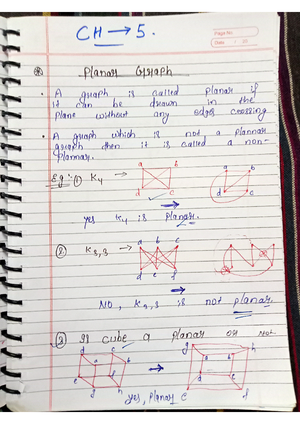 Page No.
Date
CH → 5.
Planar Graph
• A graph is called planar if
it can be drawn in the
plane without any edges crossing
• A graph which is not a plannar
graph then it is called a non-
plannar.
Eg:- ① K4 → a b d c a b d c
yes K4 is planar.
② K3,3 → a b c d e f
No, K3,3 is not planar
③ Is cube a planar or not
yes, planar